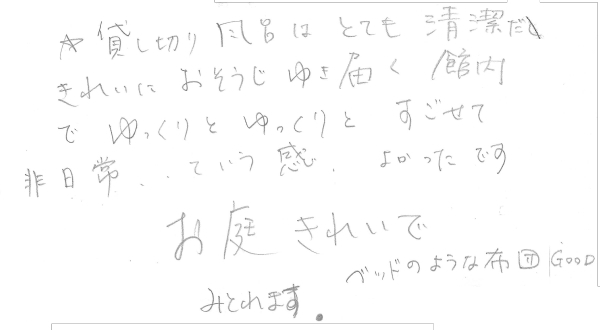 ☆貸し切り風呂はとても清潔だし
きれいにおそうじゆき届く館内
でゆっくりとゆっくりとすごせて
非日常..ていう感じ.よかったです
お庭きれいで
みとれます.
ベッドのような布団GOOD